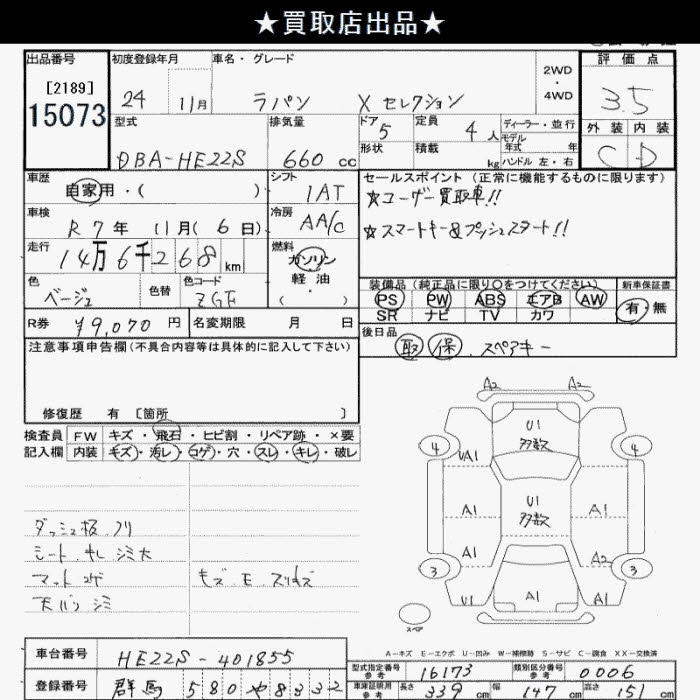 ★買取店出品★
出品番号 初度登録年月 車名・グレード 2WD・4WD 評価点
[2189]
15073
24 11月 ラパン X セレクション 3.5
型式 排気量 ドア 5 定員 4人 ディーラー・並行 外装 内装
モデル年式 年
DBA-HE22S 660 cc 形状 積載 kg ハンドル 左・右 C D
車歴 自家用・( ) シフト 1AT セールスポイント (正常に機能するものに限ります)
★ユーザー買取車!!
車検 R 7年 11月(6日) 冷房 AA/C
★スマートキー&プッシュスタート!!
走行 14万6千268km 燃料 ガソリン
軽油
( )
色 ベージュ 色替 色コード ZGF
装備品 (純正品に限り○をつけてください) 新車保証書
PS PW ABS エアB AW 有・無
SR ナビ TV カワ
R券 ¥9,070円 名変期限 月 日
後日品 取 保 . スペアキー
注意事項申告欄(不具合内容等は具体的に記入して下さい)
修復歴 有 〔箇所 〕
検査員 FW キズ・飛石・ヒビ割・リペア跡・×要
記入欄 内装 キズ・汚レ・コゲ・穴・スレ・キレ・破レ
A2 A2
U1
多数
4 4
UA1
A1 U1 A1
多数
A1 A2
3 3
U1 A1 U1
スペア
ダッシュ板.ノリ
シート.キレ シミ大
マット コゲ キズ.E.スリキズ
天バリ シミ
A-キズ E-エクボ U-凹み W-補修跡 S-サビ C-腐食 XX-交換済
車台番号 HE22S-401855
型式指定番号 参考 16173 類別区分番号 参考 0006
登録番号 群馬 580 や 8332
車庫証明用 参考 長さ 339cm 幅 147cm 高さ 151cm